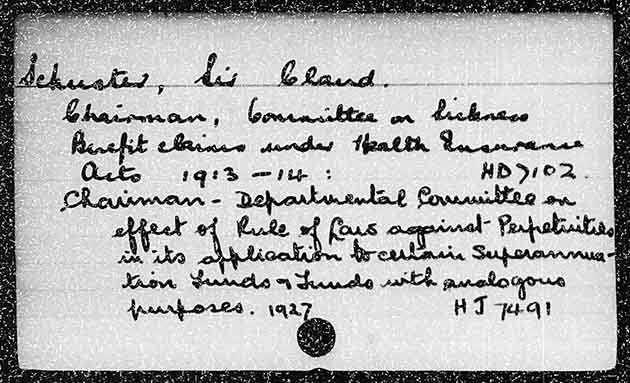 Schuster, Sir Claud.
Chairman, Committee on Sickness
Benefit claims under Health Insurance
Acts 1913-14: HD7102.
Chairman - Departmental Committee on
effect of Rule of Law against Perpetuities
in its application to certain Superannua-
tion Funds & Funds with analogous
purposes. 1927 HJ 7491